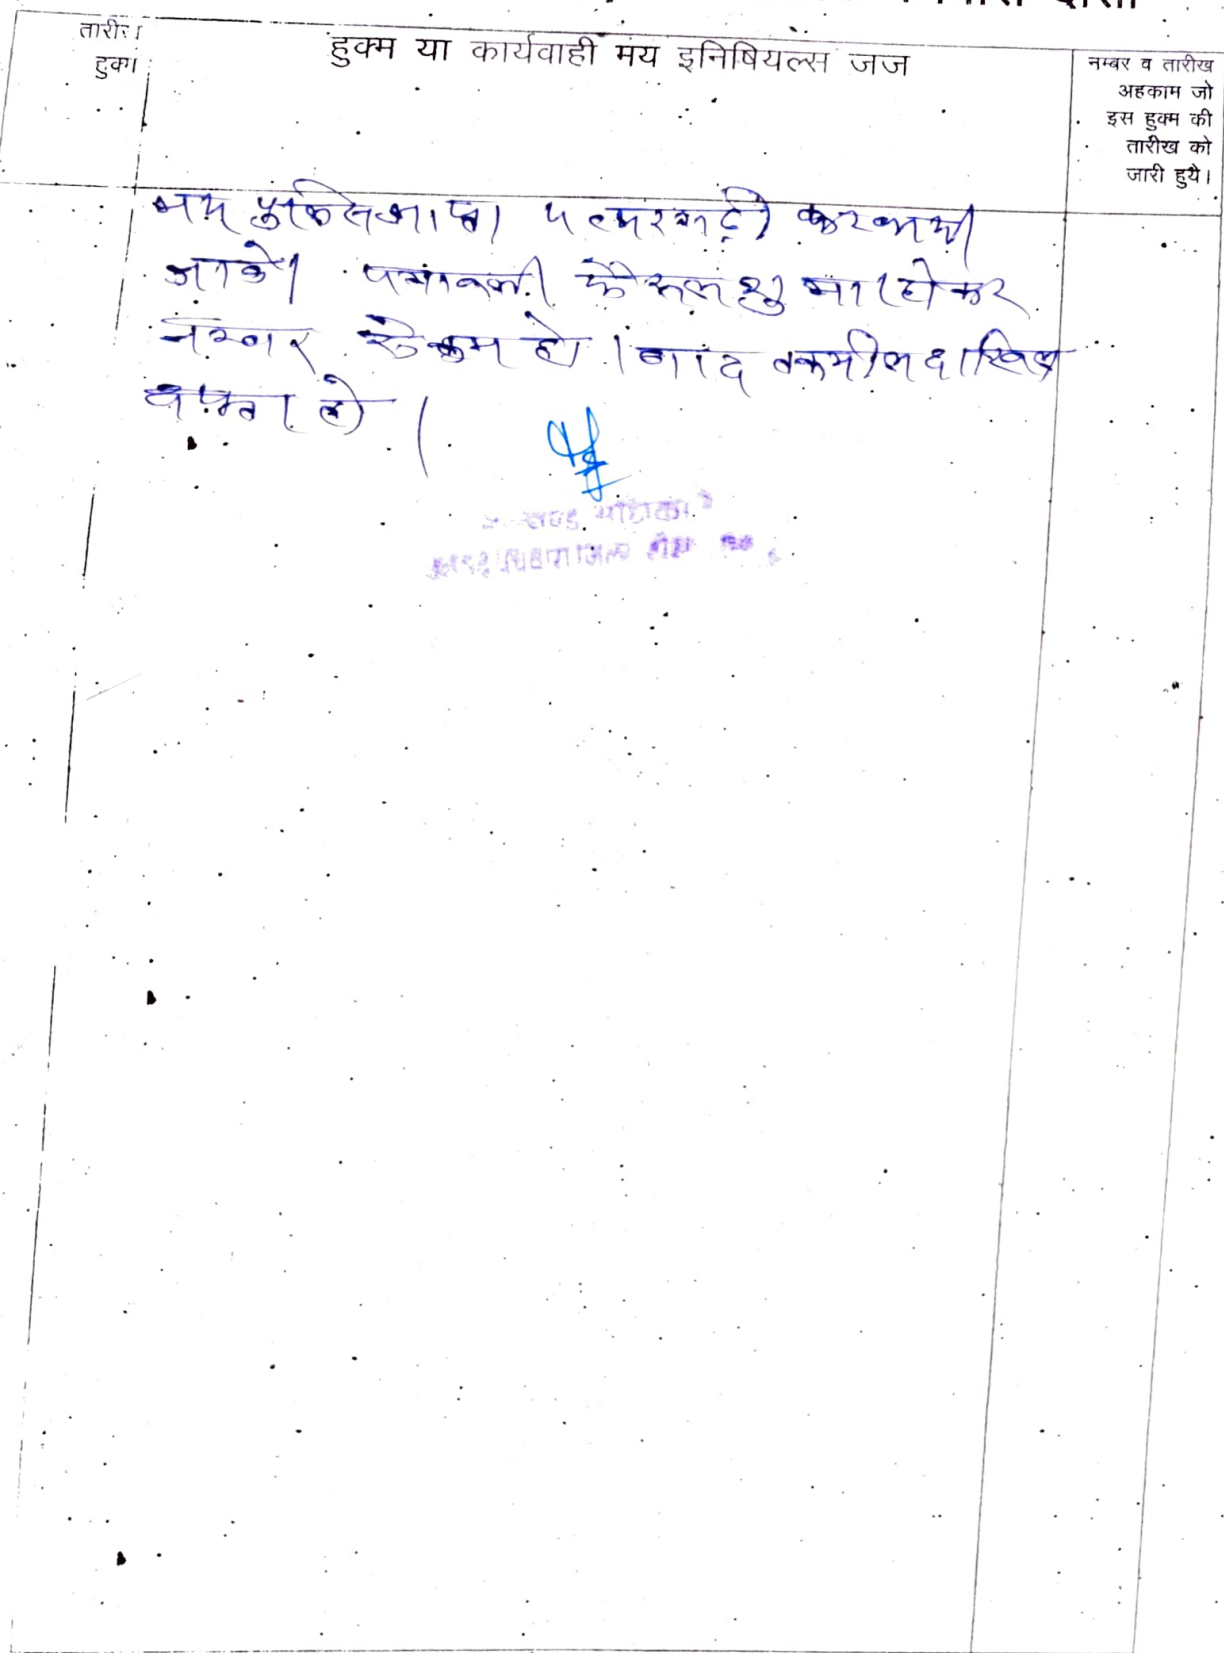 तारीख हुक्म या कार्यवाही मय इनिषियल्स जज नम्बर व तारीख
हुक्म अहकाम जो
इस हुक्म की
तारीख को
जारी हुये।
मय पुलिस जाप्ता पत्थरगढ़ी करवायी
जावे। पत्रावली फैसल शुमार होकर
नम्बर से कम हो। बाद तकमील दाखिल
दफ्तर हो।